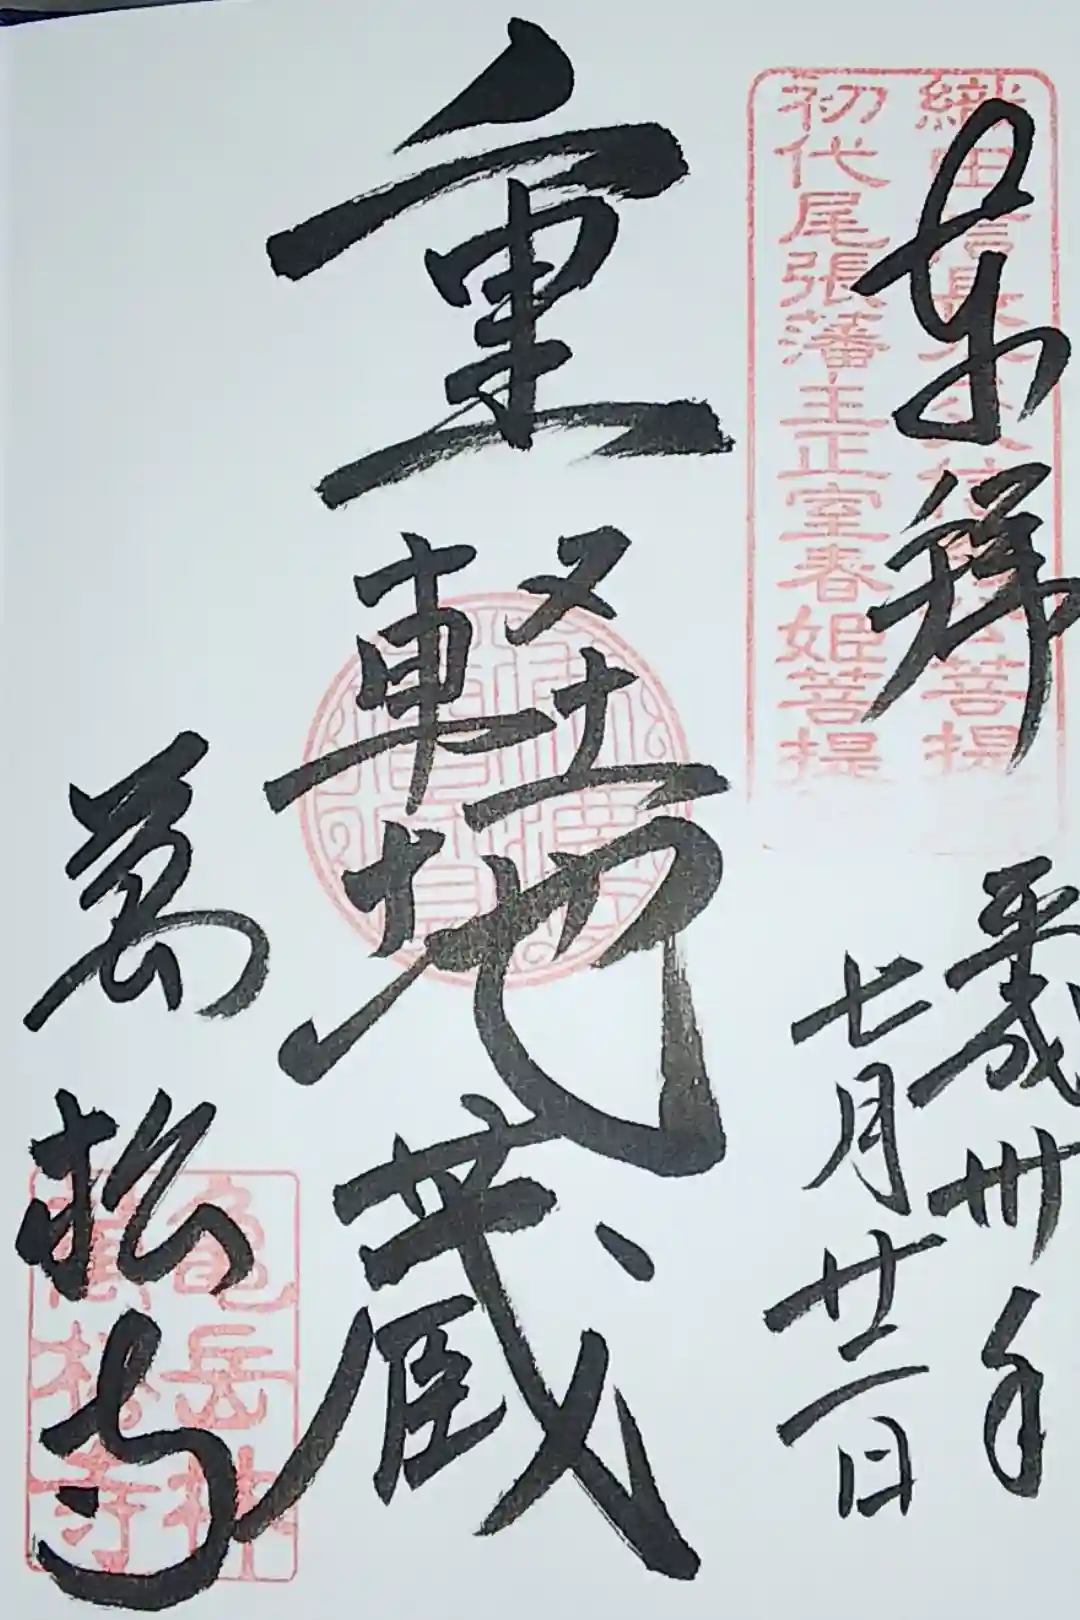 奉拝
織田信長 菩提
初代尾張藩主正室春姫菩提
平成卅年
七月廿一日
重軽地蔵
萬松寺
亀岳林
萬松寺